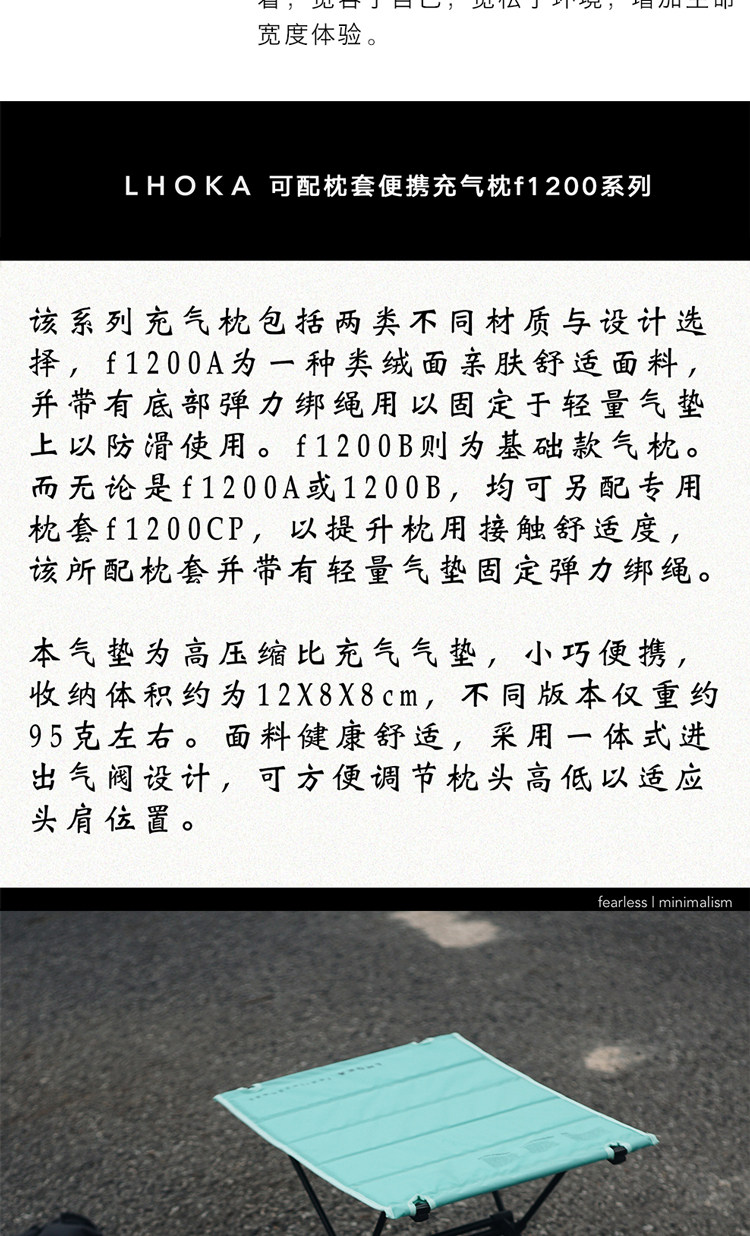 着，宽容于自己，宽松于环境，增加生命
宽度体验。
LHOKA 可配枕套便携充气枕f1200系列
该系列充气枕包括两类不同材质与设计选
择，f1200A为一种类绒面亲肤舒适面料，
并带有底部弹力绑绳用以固定于轻量气垫
上以防滑使用。f1200B则为基础款气枕。
而无论是f1200A或1200B，均可另配专用
枕套f1200CP，以提升枕用接触舒适度，
该所配枕套并带有轻量气垫固定弹力绑绳。
本气垫为高压缩比充气气垫，小巧便携，
收纳体积约为12X8X8cm，不同版本仅重约
95克左右。面料健康舒适，采用一体式进
出气阀设计，可方便调节枕头高低以适应
头肩位置。
fearless | minimalism